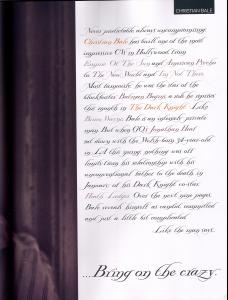 CHRISTIAN BALE
Never predictable, always uncompromising,
Christian Bale has built one of the most
impressive CVs in Hollywood from
Empire Of The Sun and American Psycho
to The New World and I'm Not There.
Most famously, he was the star of the
blockbuster Batman Begins, a role he reprises
this month in The Dark Knight. Like
Bruce Wayne, Bale is an intensely private
man. But when GQ's Jonathan
sat down with the Welsh-born 34-year-old
in LA this spring, nothing was off
limits, from his relationship with his
unconventional father to the death in
January of his Dark Knight co-star
Heath Ledger. Over the next nine pages,
Bale reveals himself as candid, committed
and just a little bit complicated.
Like the man says,
...Bring on the crazy.